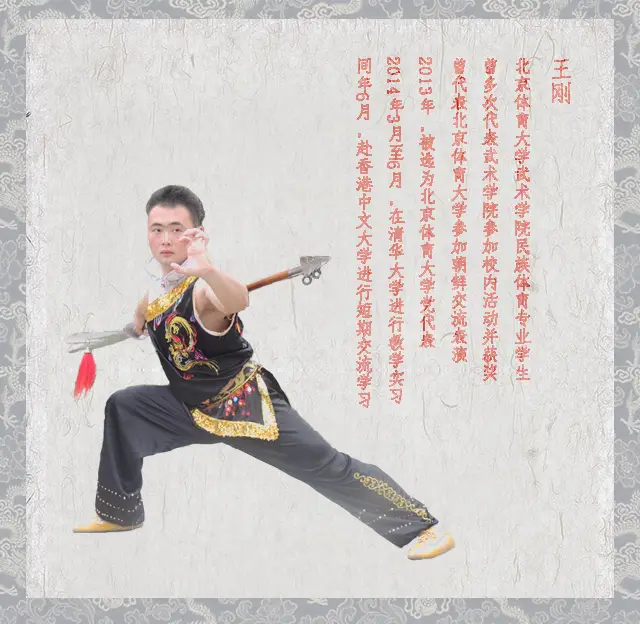 王刚
北京体育大学武术学院民族体育专业学生
曾多次代表武术学院参加校内活动并获奖
曾代表北京体育大学参加朝鲜交流表演
2013年，被选为北京体育大学党代表
2014年3月至6月，在清华大学进行教学实习
同年6月，赴香港中文大学进行短期交流学习